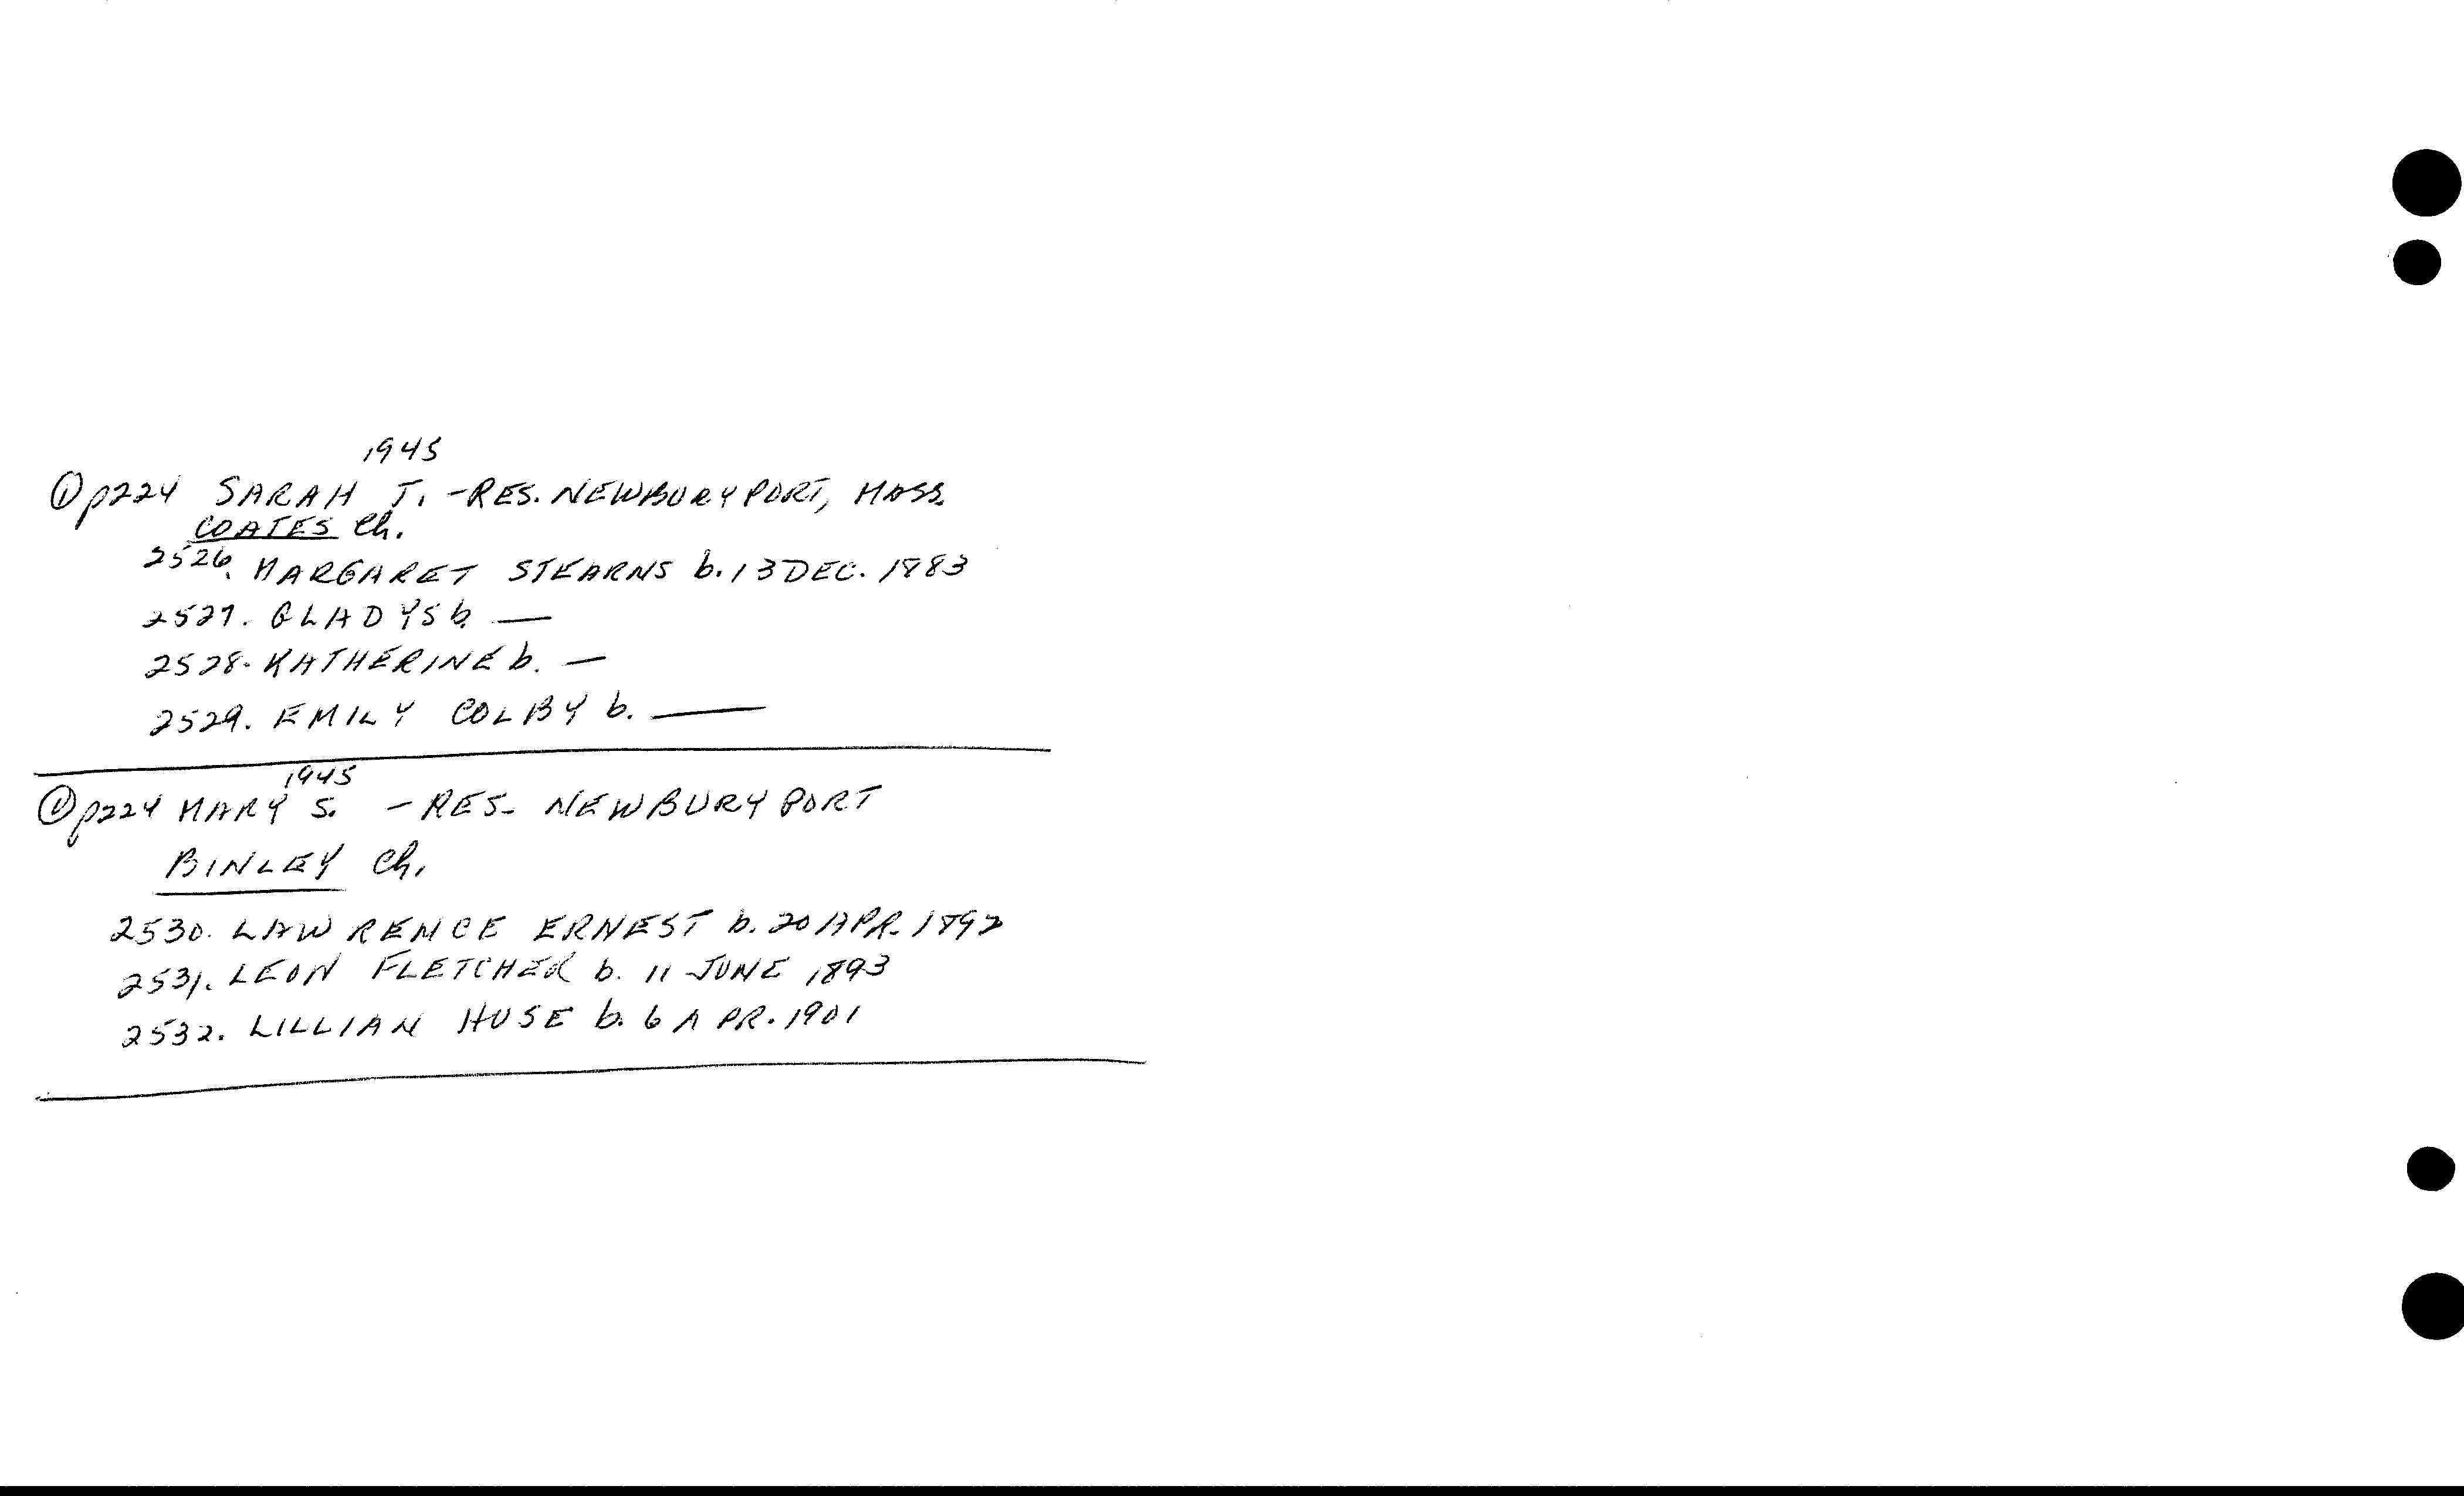 1945
① p224 SARAH J. - RES. NEWBURYPORT, MASS.
COATES Ch.
2526. MARGARET STEARNS b. 13 DEC. 1883
2527. GLADYS b. —
2528. KATHERINE b. —
2529. EMILY COLBY b. —
1945
① p224 MARY S. - RES. NEWBURYPORT
BINLEY Ch.
2530. LAWRENCE ERNEST b. 20 APR. 1892
2531. LEON FLETCHER b. 11 JUNE 1893
2532. LILLIAN HUSE b. 6 APR. 1901